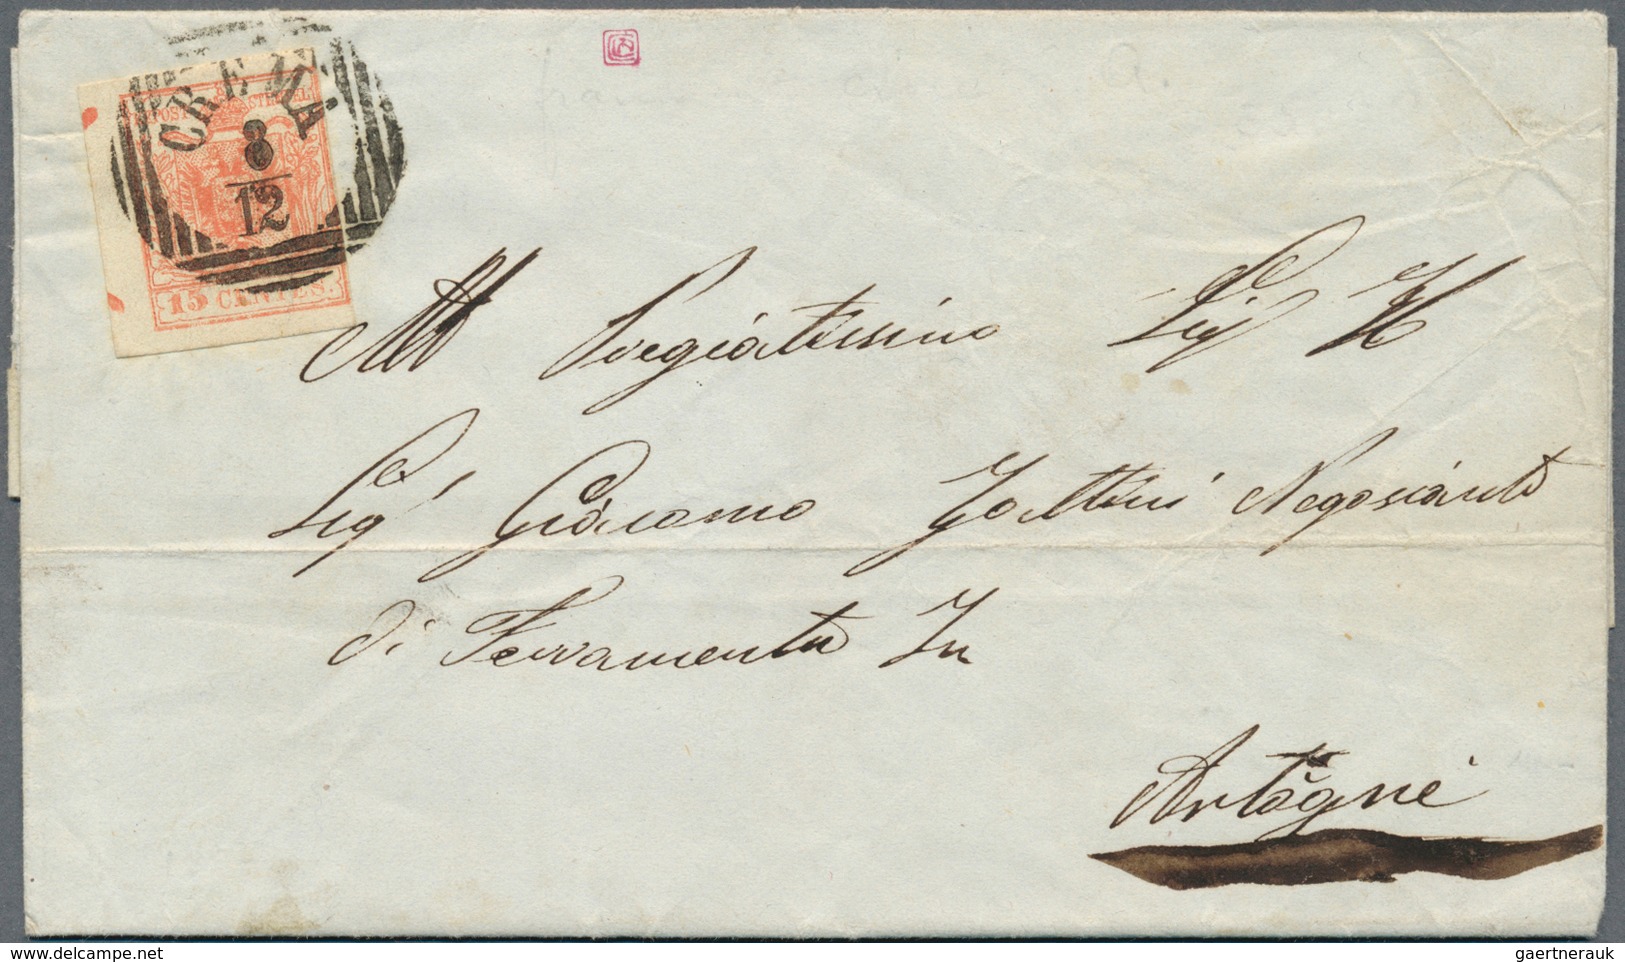 CREMA
8
12
POST STEMPEL
15 CENTES.
All Pregiatissimo Sig H
Sig Giacomo Zattini Negosiante
di Ferramenta In
Artogne
delcampe.net
gaertnerauk